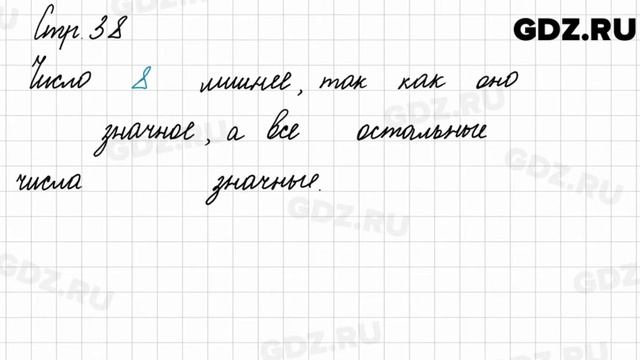 Стр. 38
GDZ.RU
Число 8 лишнее, так как оно
значное, а все остальные
числа значные.
GDZ.RU
GDZ.RU
GDZ.RU
GDZ.RU
GDZ.RU
GDZ.RU